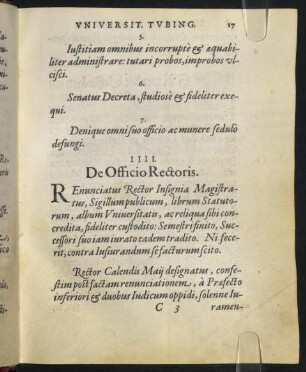 VNIVERSIT. TVBING. 17
5.
Iustitiam omnibus incorruptè & æquabi-
liter administrare: tutari probos, improbos vl-
cisci.
6.
Senatus Decreta, studiosè & fideliter exe-
qui.
7.
Denique omni suo officio ac munere sedulò
defungi.
IIII.
De Officio Rectoris.
REnunciatus Rector Insignia Magistra-
tus, Sigillum publicum, librum Statuto-
rum, album Vniuersitatis, ac reliqua sibi con-
credita, fideliter custodito: Semestri finito, Suc-
cessori suo iam iurato eadem tradito. Ni fece-
rit, contra Iusiurandum se facturum scito.
Rector Calendis Maij designatus, confe-
stim post factam renunciationem, à Præfecto
inferiori & duobus Iudicum oppidi, solenne Iu-
C 3 ramen-